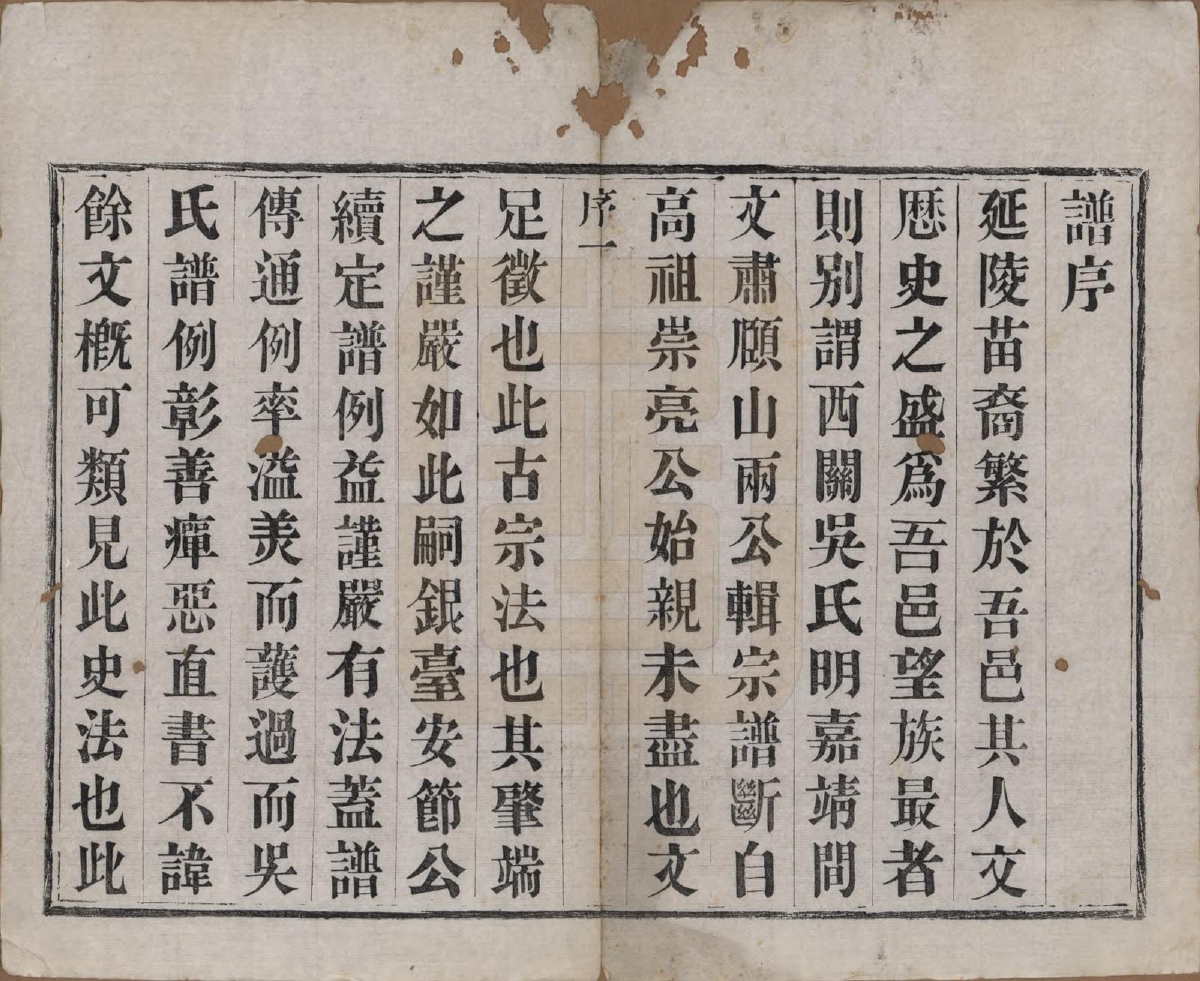 譜序
延陵苗裔繁於吾邑其人文
歷史之盛爲吾邑望族最者
則别謂西關吳氏明嘉靖間
文肅頤山兩公輯宗譜斷自
高祖崇亮公始親未盡也文
序一
足徵也此古宗法也其肇端
之謹嚴如此嗣銀臺安節公
續定譜例益謹嚴有法蓋譜
傳通例率溢美而護過而吳
氏譜例彰善癉惡直書不諱
餘文概可類見此史法也此